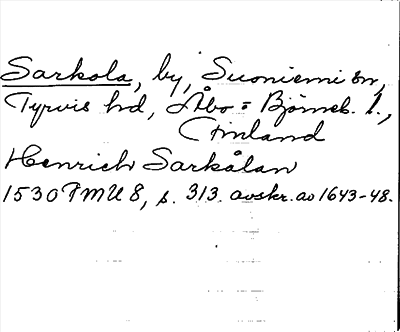 Sarkola, by, Suoniemi sn,
Tyrvis hd, Åbo = Björneb. l.,
Finland
Henrich Sarkålan
1530 FMU 8, s. 313. avskr. av 1643-48.